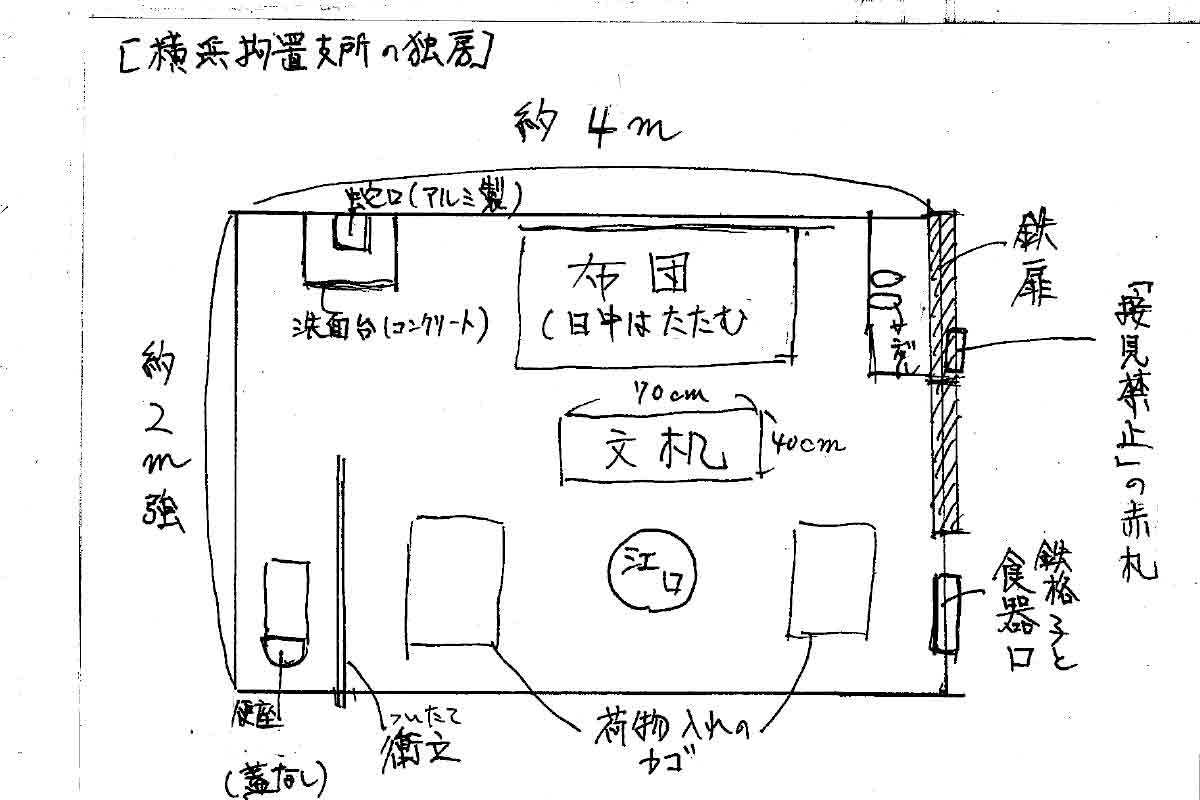 [横浜拘置支所の独房]
約4m
蛇口(アルミ製)
洗面台(コンクリート)
布団
(日中はたたむ
サンダル
鉄扉
「接見禁止」の赤札
約2m強
70cm
40cm
文机
江口
鉄格子と
食器口
便座
(蓋なし)
ついたて
衝立
荷物入れの
カゴ